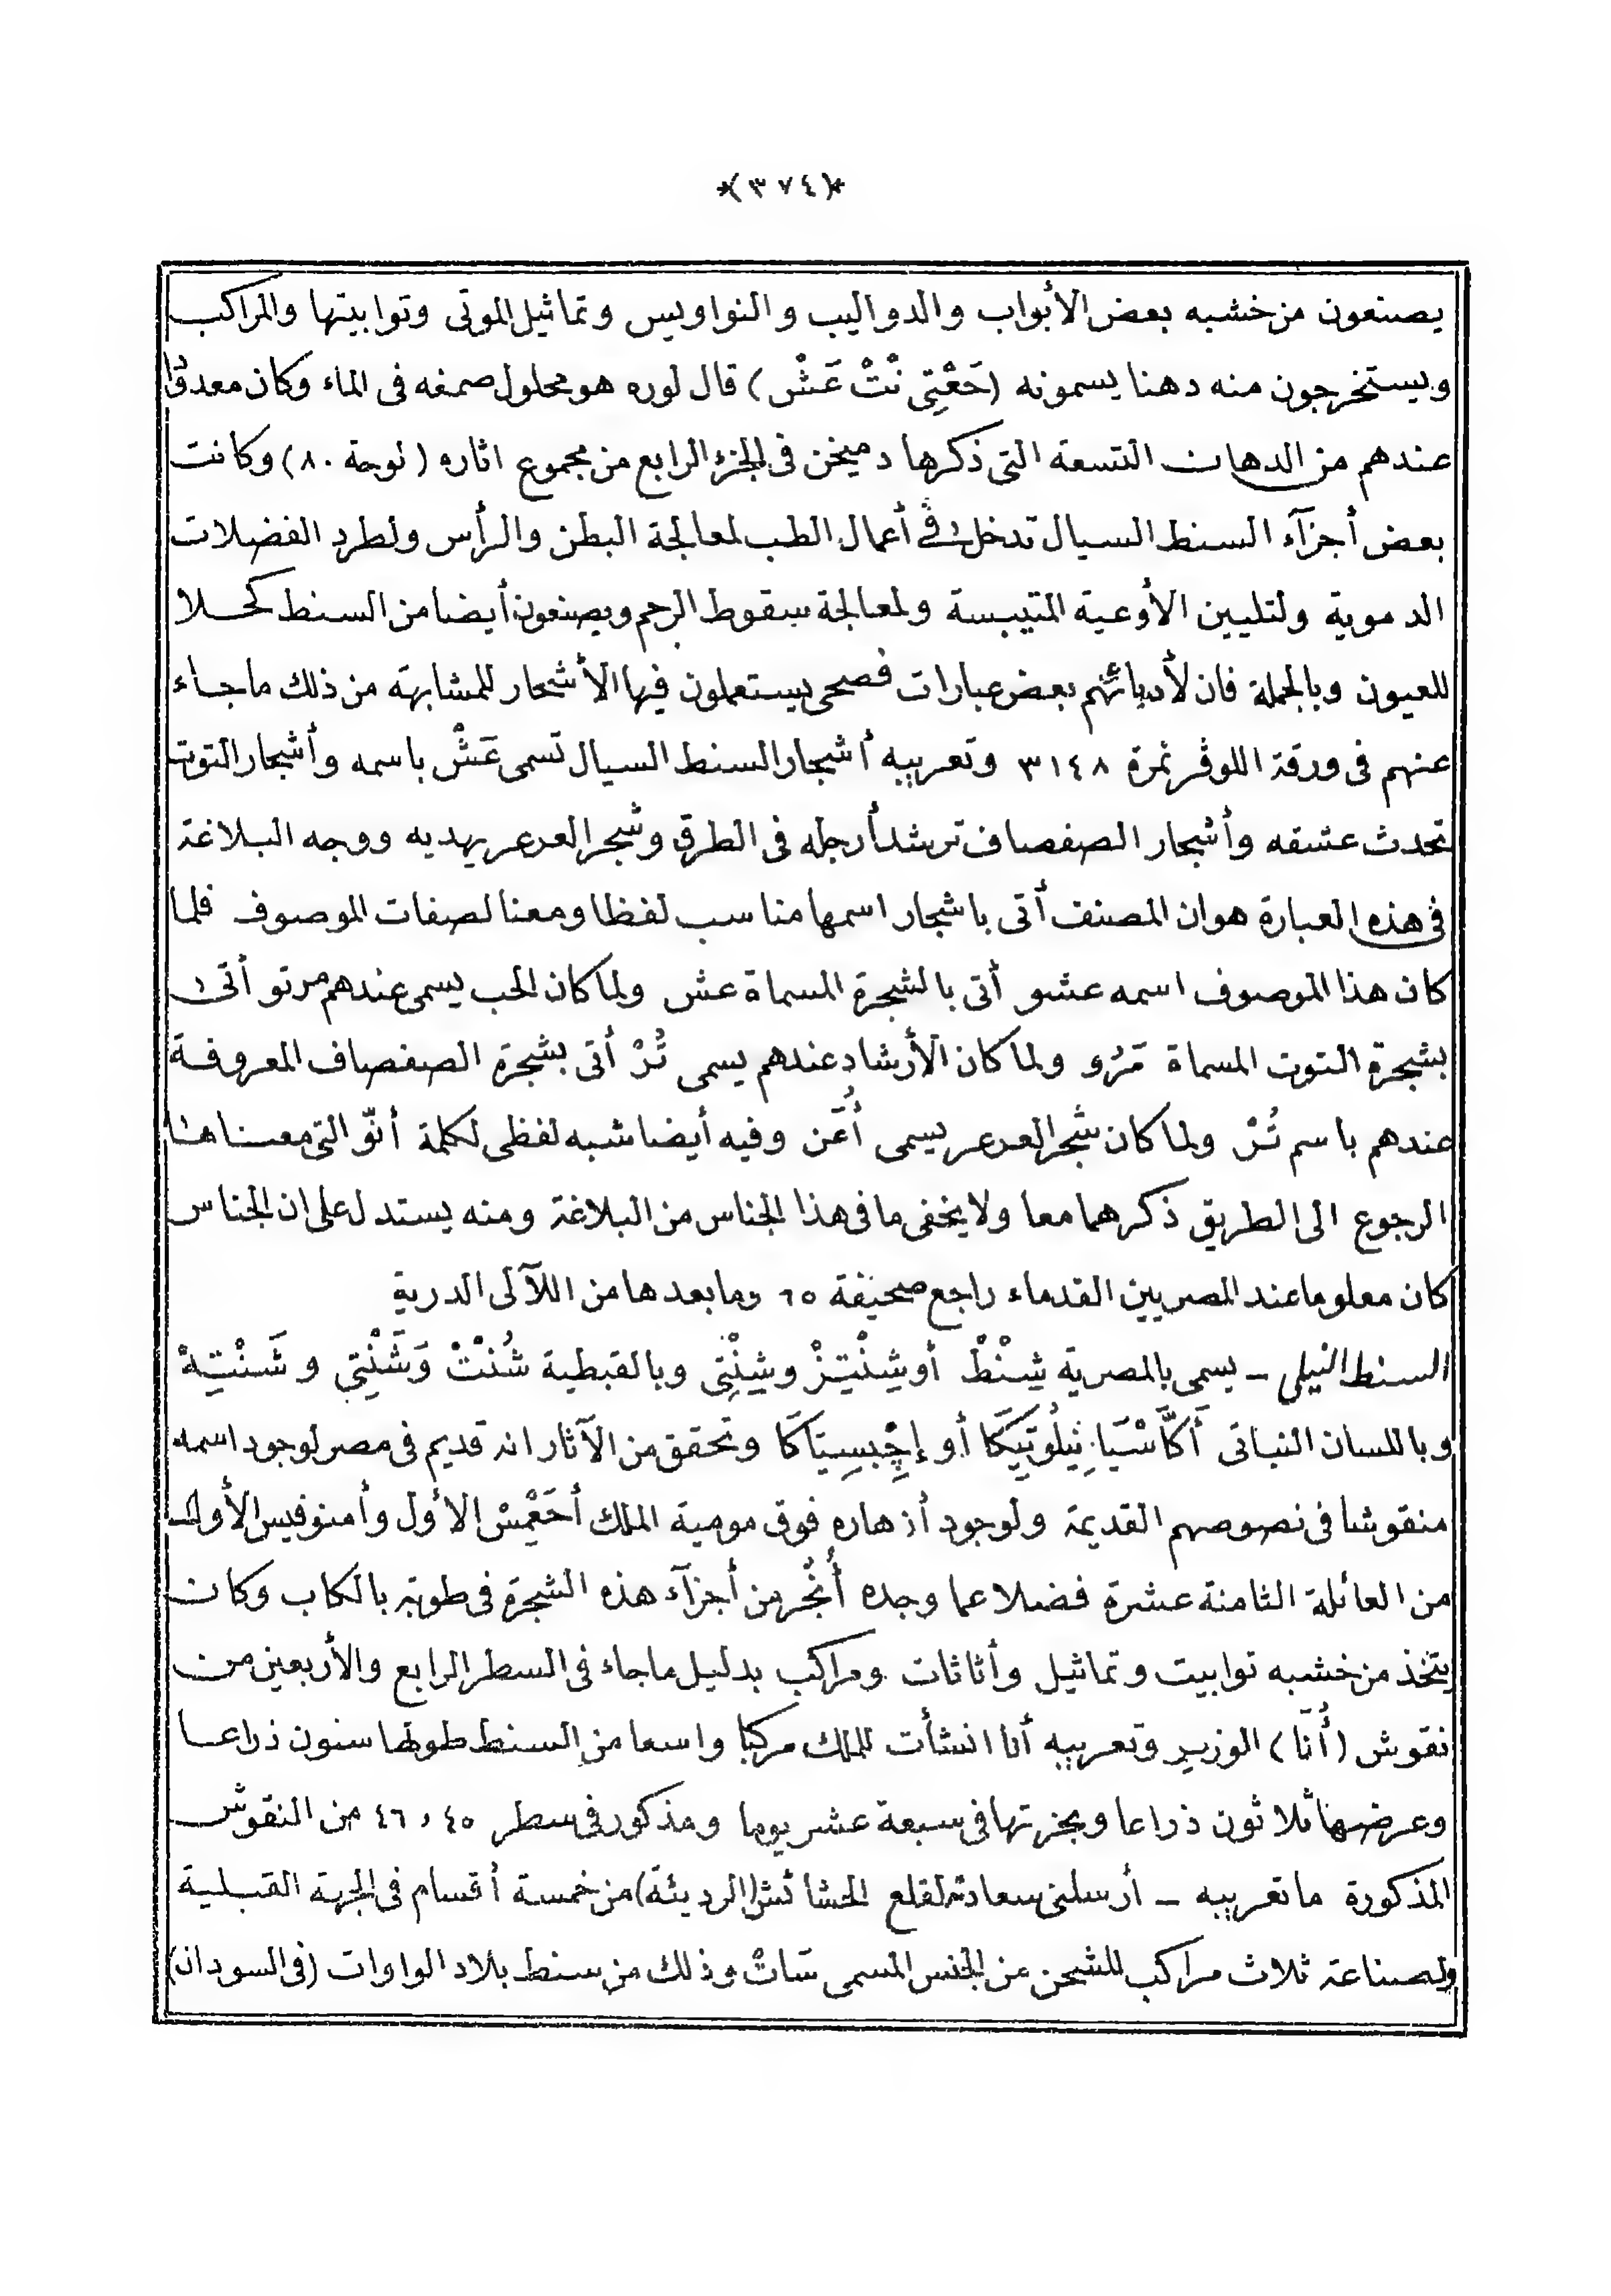 *(٣٧٤)*
يصنعون من خشبه بعض الأبواب والدواليب والنواويس وتماثيل الموتى وتوابيتها والمراكب
ويستخرجون منه دهنا يسمونه (حَعْتِى نْتْ عَشْ) قال لوره هو محلول صمغه فى الماء وكان معدودًا
عندهم من الدهان التسعة التى ذكرها دميخن فى الجزء الرابع من مجموع اثاره (لوحة ٨٠) وكانت
بعض أجزآء السنط السيال تدخل فى أعمال الطب لمعالجة البطن والرأس ولطرد الفضلات
الدموية ولتليين الأوعية المتيبسة ولمعالجة سقوط الرحم ويصنعون أيضا من السنط كحلا
للعيون وبالجملة فان لأدبائهم بعض عبارات فصحى يستعملون فيها الأشجار للمشابهة من ذلك ما جاء
عنهم فى ورقة اللوڤر نمرة ٣١٤٨ وتعريبه أشجار السنط السيال تسمى عَشْ باسمه وأشجار التوت
تحدث عشقه وأشجار الصفصاف ترشد أرجله فى الطرق وشجر العرعر يهديه ووجه البلاغة
فى هذه العبارة هو ان المصنف أتى باشجار اسمها مناسب لفظا ومعنا لصفات الموصوف فلما
كان هذا الموصوف اسمه عشو أتى بالشجرة المسماة عش ولما كان الحب يسمى عندهم مرتو أتى
بشجرة التوت المسماة مَرُو ولما كان الأرشاد عندهم يسمى تُرْ أتى بشجرة الصفصاف المعروفة
عندهم باسم تُرْ ولما كان شجر العرعر يسمى أُعَن وفيه أيضا شبه لفظى لكلمة أنّو التى معناها
الرجوع الى الطريق ذكرهما معا ولا يخفى ما فى هذا الجناس من البلاغة ومنه يستدل على ان الجناس
كان معلوما عند المصريين القدماء راجع صحيفة ٦٥ وما بعدها من اللآلى الدرية
السنط النيلى ــ يسمى بالمصرية شِنْطْ أو شِنْتِزْ وشِنْتِى وبالقبطية شُنْتْ وَشَنْتِى وشَنْتِهْ
وباللسان النباتى أَكَّاسْيَا نِيلُوتِيكَا أو إجِپْسِيَاكَا وتحقق من الآثار انه قديم فى مصر لوجود اسمه
منقوشا فى نصوصهم القديمة ولوجود أزهاره فوق مومية الملك أحَعْمِسْ الأول وأمنوفيس الأول
من العائلة الثامنة عشرة فضلا عما وجده أُنْجُر من أجزآء هذه الشجرة فى طوبة بالكاب وكان
يتخذ من خشبه توابيت وتماثيل وأثاثات ومراكب بدليل ما جاء فى السطر الرابع والأربعين من
نقوش (أُنَا) الوزير وتعريبه أنا انشأت للملك مركبا واسعا من السنط طولها ستون ذراعا
وعرضها ثلاثون ذراعا ونجزتها فى سبعة عشر يوما ومذكور فى سطر ٤٥ و ٤٦ من النقوش
المذكورة ما تعريبه ــ أرسلنى سعادته لقلع الحشائش (الرديئة) من خمسة أقسام فى الجهة القبلية
ولصناعة ثلاث مراكب للشحن من الجنس المسمى سَاتْ وذلك من سنط بلاد الواوات (فى السودان)